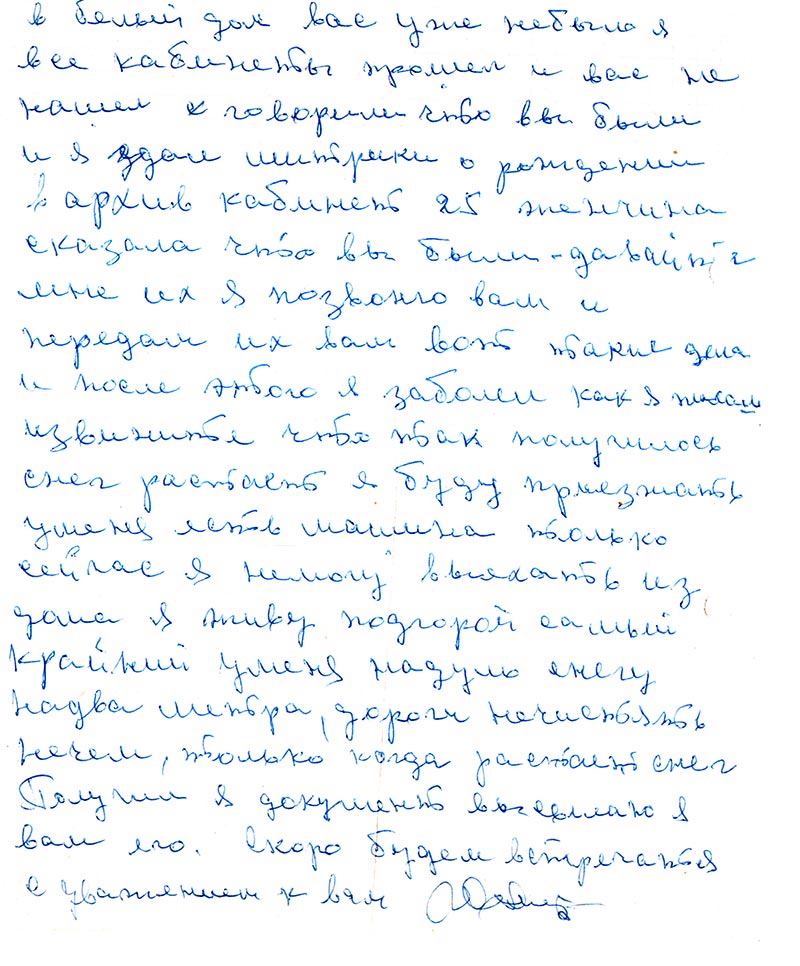 в белый дом вас уже небыло я
все кабинеты прошел и вас не
нашел а говорили что вы были
и я здал митрики о рождении
в архив кабинет 25 женчина
сказала что вы были - давайте
мне их я позвоню вам и
передам их вам вот такие дела
и после этого я заболел как я писал
извините что так получилось
снег растает я буду приезжать
уменя есть машина только
сейчас я немогу выехать из
дома я живу подгорой самый
крайний уменя надуло снегу
надва метра, дороги нечистять
нечем, только когда растает снег
Получил я документ высылаю я
вам его. Скоро будем встречатся
с уважением к вам